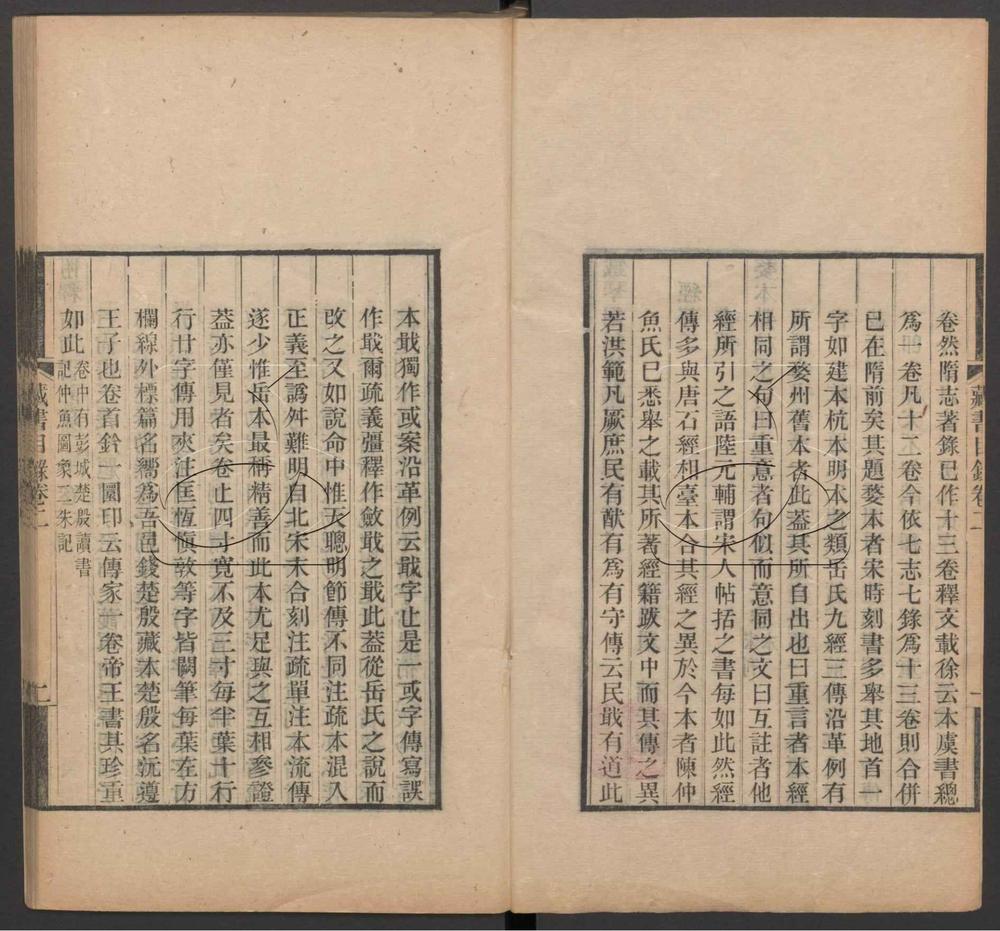 卷然隋志著錄巳作十三卷釋文載徐云本虞書總
爲一卷凡十二卷今依七志七錄爲十三卷則合併
巳在隋前矣其題婺本者宋時刻書多舉其地首一
字如建本杭本明本之類岳氏九經三傳沿革例有
所謂婺州舊本者此葢其所自出也曰重言者本經
相同之句曰重意者句似而意同之文曰互註者他
經所引之語陸元輔謂宋人帖括之書每如此然經
傳多與唐石經相臺本合其經之異於今本者陳仲
魚氏巳悉舉之載其所著經籍跋文中而其傳之異
若洪範凡厥庶民有猷有爲有守傳云民戢有道此
藏書目錄卷二
一
本戢獨作或案沿革例云戢字止是一或字傳寫誤
作戢爾疏義彊釋作斂戢之戢此葢從岳氏之說而
改之又如說命中惟天聰明節傳不同注疏本混入
正義至譌舛難明自北宋末合刻注疏單注本流傳
遂少惟岳本最稱精善而此本尤足與之互相參證
葢亦僅見者矣卷止四寸寬不及三寸每半葉十行
行廿字傳用夾注匡恆愼敦等字皆闕筆每葉左方
欄線外標篇名嚮爲吾邑錢楚殷藏本楚殷名沅遵
王子也卷首鈐一圜印云傳家一卷帝王書其珍重
如此卷中有彭城楚殷讀書
記仲魚圖象二朱記
藏書目錄卷二
二